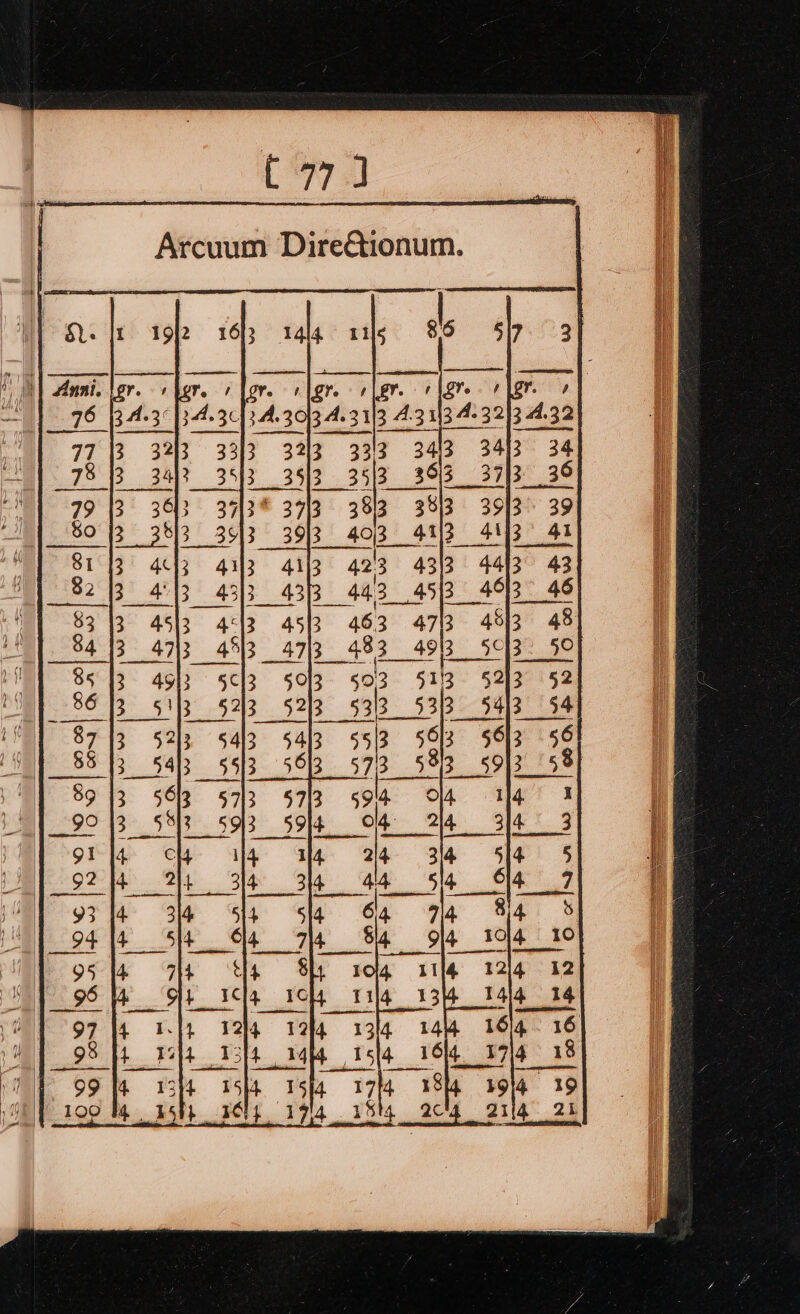 [ 77 ]
Arcuum Directionum.
♌. 1 19 2 16 3 14 4 11 5 8 6 5 7 3
Anni. gr. ′ gr. ′ gr. ′ gr. ′ gr. ′ gr. ′ gr. ′
76 3 A.30 3 A.30 3 A.30 3 A.31 3 A.31 3 A.32 3 A.32
77 3 32 3 33 3 32 3 33 3 34 3 34 3 34
78 3 34 3 35 3 35 3 35 3 36 3 37 3 36
79 3 36 3 37 3 37 3 38 3 38 3 39 3 39
80 3 38 3 39 3 39 3 40 3 41 3 41 3 41
81 3 40 3 41 3 41 3 42 3 43 3 44 3 43
82 3 4 3 43 3 43 3 44 3 45 3 46 3 46
83 3 45 3 4 3 45 3 46 3 47 3 48 3 48
84 3 47 3 48 3 47 3 48 3 49 3 50 3 50
85 3 49 3 50 3 50 3 50 3 51 3 52 3 52
86 3 51 3 52 3 52 3 53 3 53 3 54 3 54
87 3 52 3 54 3 54 3 55 3 56 3 56 3 56
88 3 54 3 55 3 56 3 57 3 58 3 59 3 58
89 3 56 3 57 3 57 3 59 4 0 4 1 4 1
90 3 58 3 59 3 59 4 0 4 2 4 3 4 3
91 4 0 4 1 4 1 4 2 4 3 4 5 4 5
92 4 2 4 3 4 3 4 4 4 5 4 6 4 7
93 4 3 4 5 4 5 4 6 4 7 4 8 4 8
94 4 5 4 6 4 7 4 8 4 9 4 10 4 10
95 4 7 4 8 4 8 4 10 4 11 4 12 4 12
96 4 9 4 10 4 10 4 11 4 13 4 14 4 14
97 4 1 4 12 4 12 4 13 4 14 4 16 4 16
98 4 12 4 13 4 14 4 15 4 16 4 17 4 18
99 4 13 4 15 4 15 4 17 4 18 4 19 4 19
100 4 15 4 16 4 17 4 18 4 20 4 21 4 21